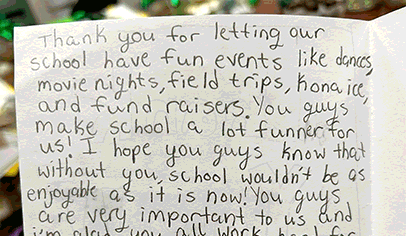 Thank you for letting our
school have fun events like dances,
movie nights, field trips, kona ice,
and fund raisers. You guys
make school a lot funner for
us! I hope you guys know that
without you, school wouldn't be as
enjoyable as it is now! You guys
are very important to us and
i'm glad you all work hard for